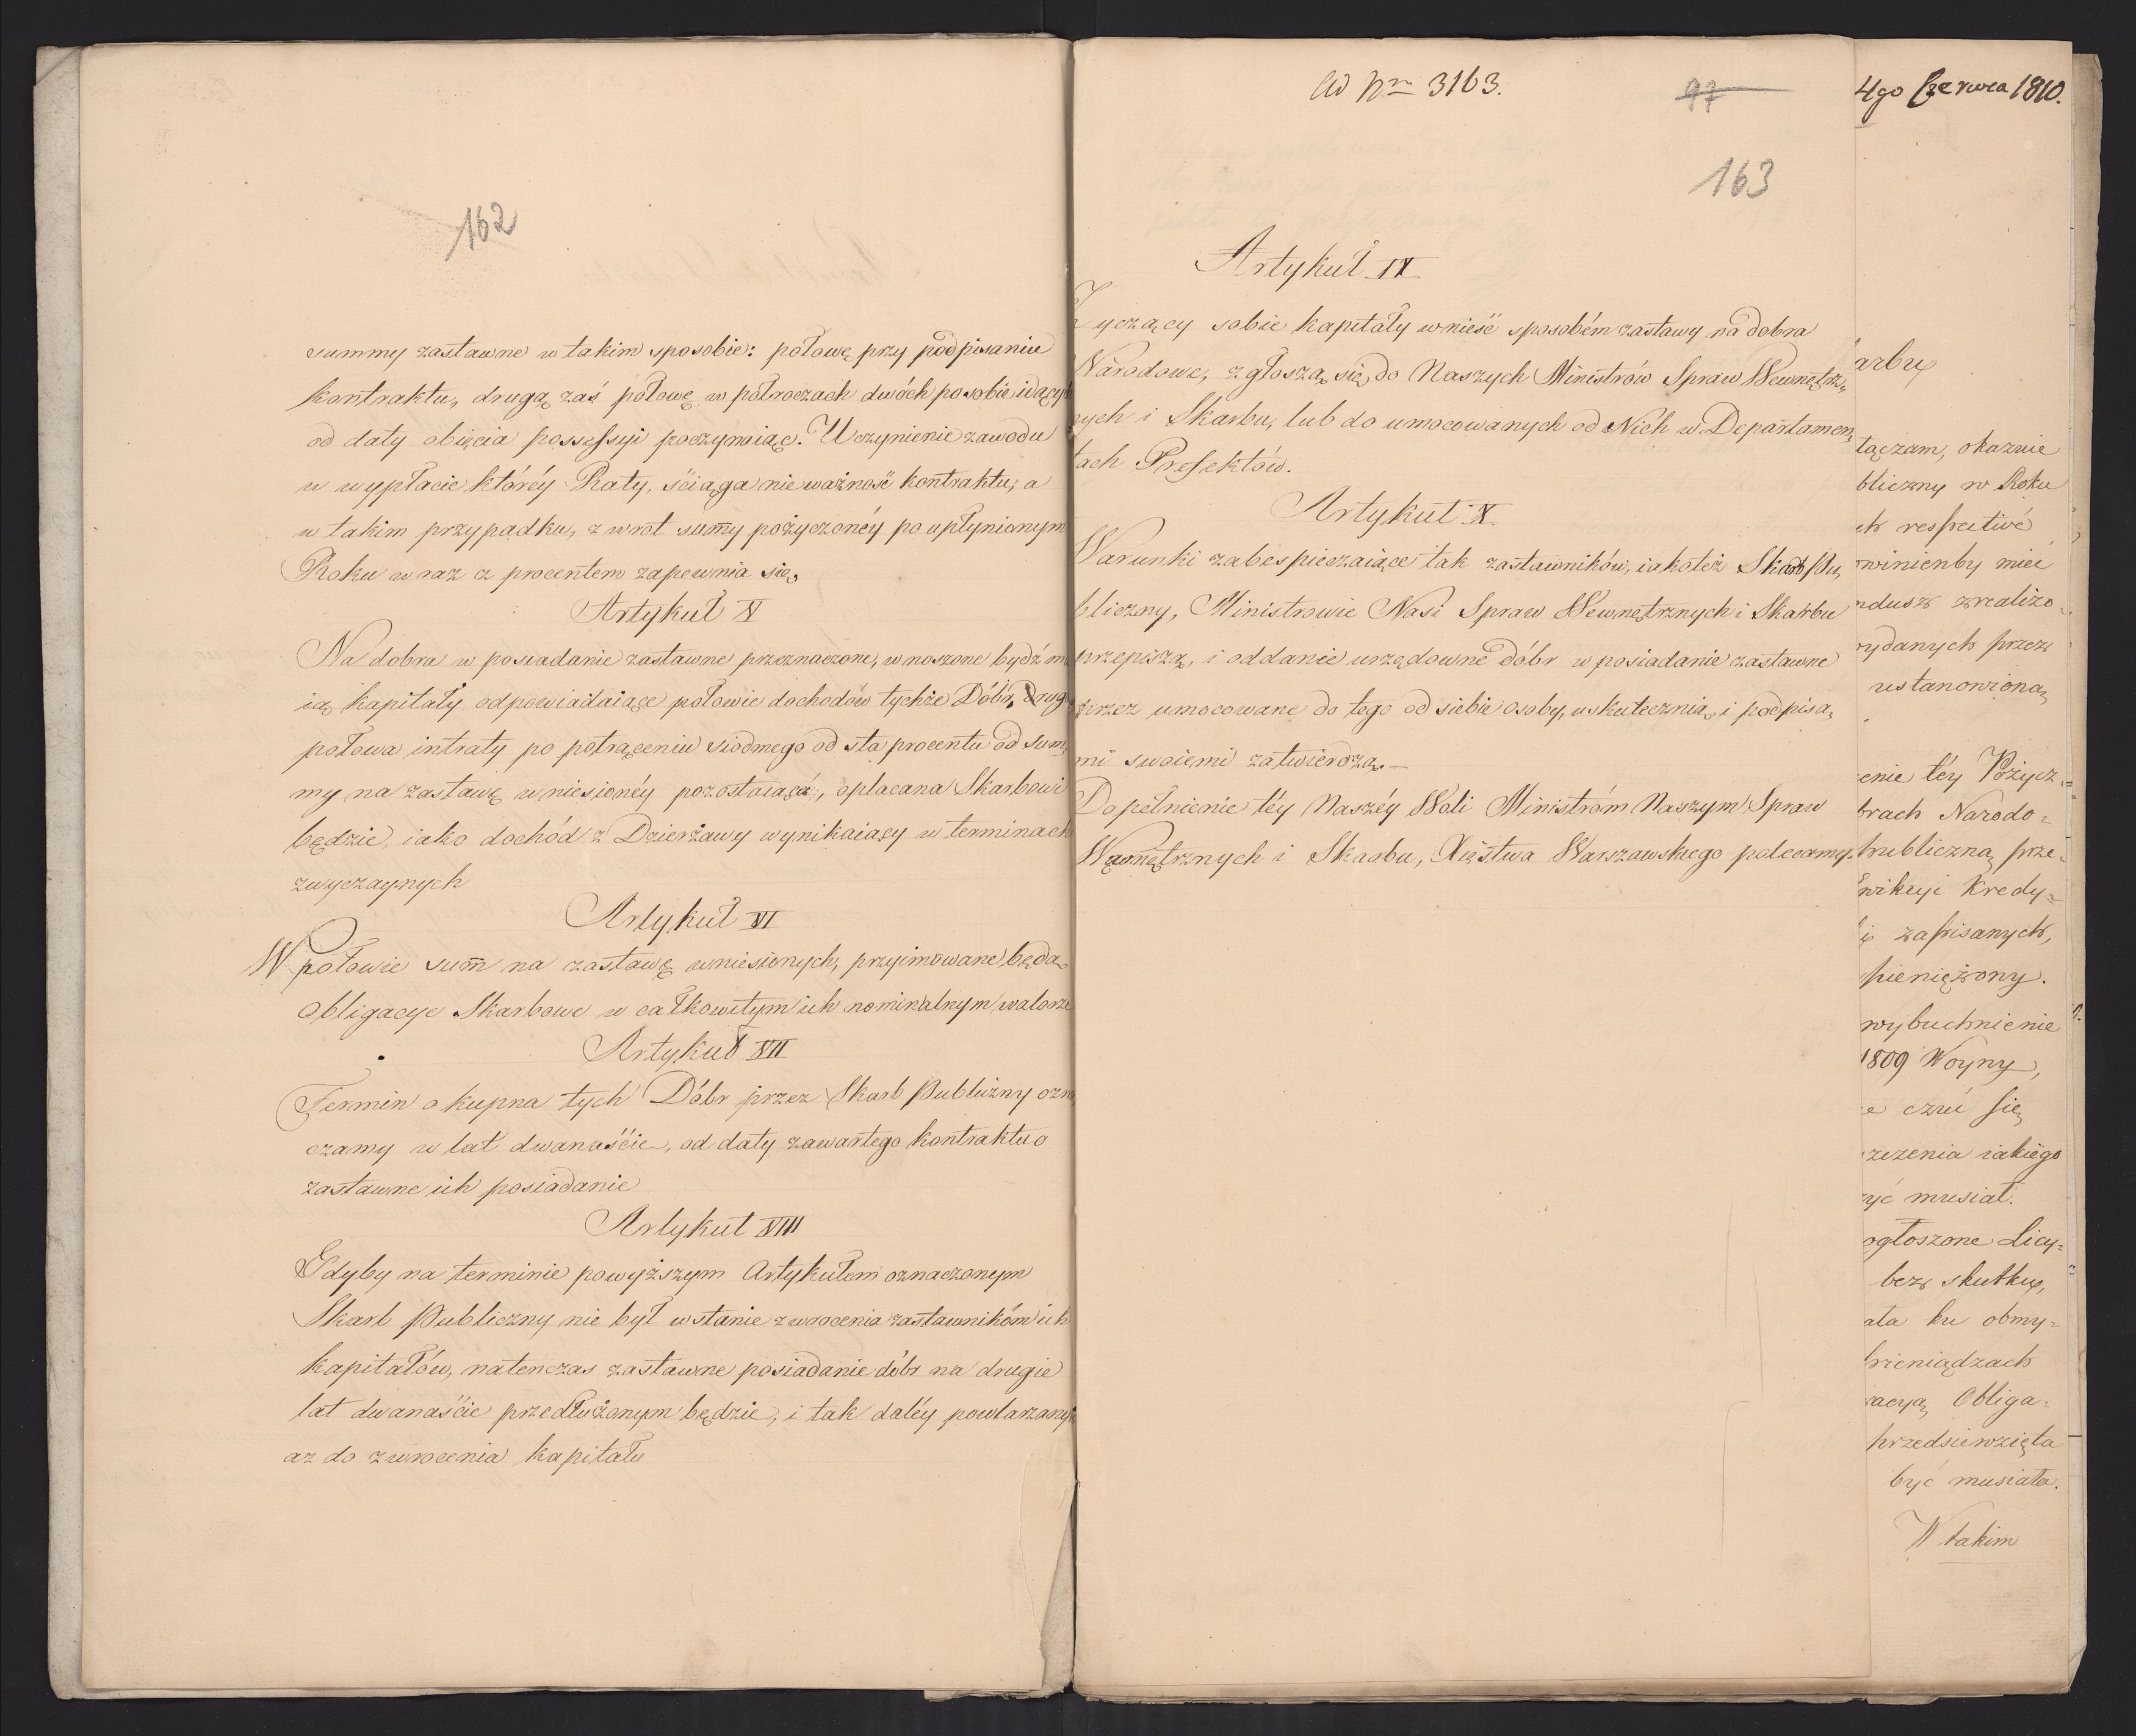 162
summy zastawne w takim sposobie: połowę przy podpisaniu
kontraktu, drugą zaś połowę w półroczach dwóch po sobie idących
od daty obięcia possessyi poczynaiąc. Uczynienie zawodu
w wypłacie któréy Raty, ściąga nieważność kontraktu; a
w takim przypadku, zwrot sum̄y pożyczonéy po upłynionym
Roku wraz z procentem zapewnia się,
Artykuł V
Na dobra w posiadanie zastawne przeznaczone, wnoszone bydź ma
ią kapitały odpowiadaiące połowie dochodów tychże Dóbr, Drug
połowa intraty po potrąceniu siódmego od sta procentu od sum
my na zastawę wniesionéy pozostaiąca, opłacana Skarbowi
będzie, iako dochód z Dzierżawy wynikaiący w terminach
zwyczaynych
Artykuł VI
W połowie sum̄ na zastawę wniesionych, przyimowane będą
Obligacye Skarbowe w całkowitym ich nominalnym walorze
Artykuł VII
Termin okupna tych Dóbr przez Skarb Publiczny ozna
czamy w lat dwanaście, od daty zawartego kontraktu o
zastawne ich posiadanie
Artykuł VIII
Gdyby na terminie powyższym Artykułem oznaczonym
Skarb Publiczny nie był wstanie zwrocenia zastawnikóm ich
kapitałów, natenczas zastawne posiadanie dóbr na drugie
lat dwanaście przedłużonym będzie, i tak daléy powtarzanym
aż do zwrocenia kapitału
ad Nrm 3163.
97
163
Artykuł IX
Życzący sobie kapitały wnieść sposobém zastawy na dobra
Narodowe, zgłoszą się do Naszych Ministrów Spraw Wewnętrz
nych i Skarbu, lub do umocowanych od Nich w Departamen
tach Prefektów.
Artykuł X
Warunki zabespieczaiące tak zastawników, iakoteż Skarb Pu
bliczny, Ministrowie Nasi Spraw Wewnętrznych i Skarbu
przepiszą, i oddanie urzędowne dóbr w posiadanie zastawne
przez umocowane do tego od siebie osoby, uskutecznią, i podpisa
mi swoiemi zatwierdzą.—
Dopełnienie téy Naszéy Woli Ministróm Naszym Spraw
Wewnętrznych i Skarbu, Xięstwa Warszawskiego polecamy.
4go Czerwca 1810.
arbu
łączam, okaznie
bliczny w Roku
ch respective
winienby mieć
ndusz zrealizo
ydanych przez
ustanowioną
enie téy Pożycz=
brach Narodo=
publiczną prze=
wikcyi Kredy=
ę zapisanych,
pieniężony.
wybuchnienie
1809 Woyny,
e czuć się
zczenia iakiego
yć musiał.
ogłoszone Licy=
bez skutku,
ała ku obmy=
pieniądzach
racyą Obliga=
przedsięwzięta
być musiała.
W takim